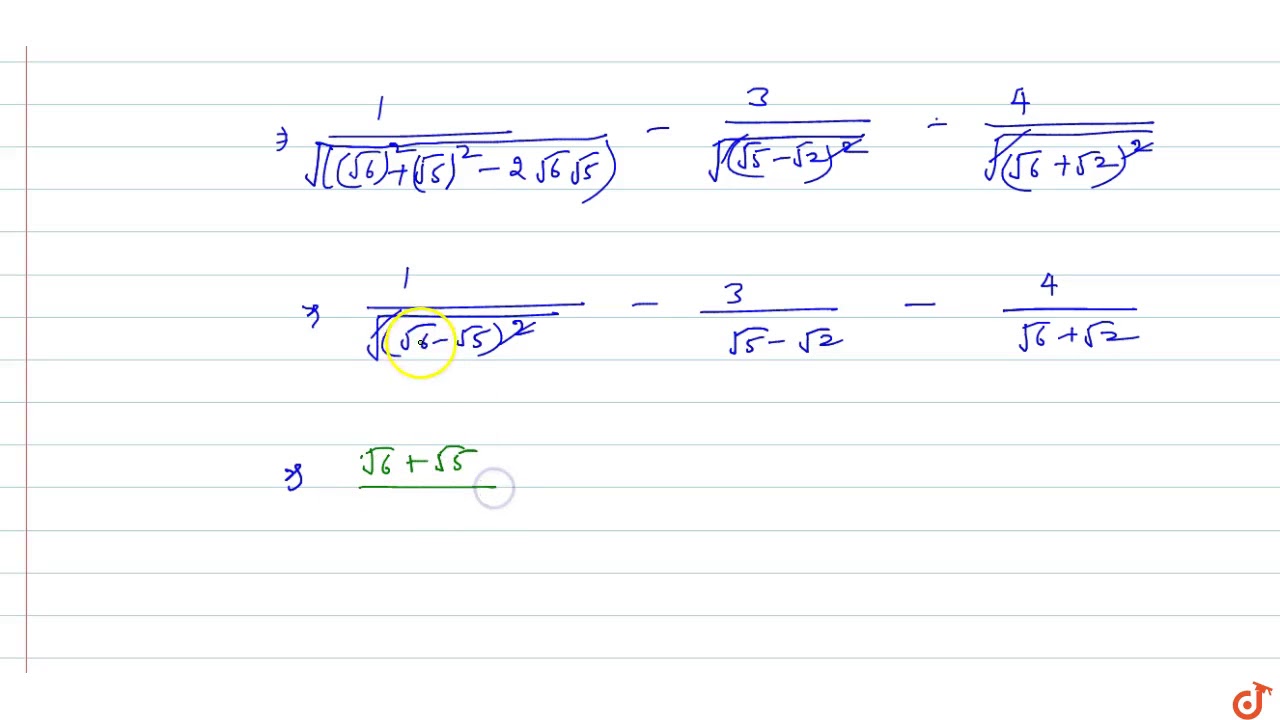 ⇒ 1/√((√6)²+(√5)²-2√6√5) - 3/√(√5-√2)² - 4/√(√6+√2)²
⇒ 1/√(√6-√5)² - 3/(√5-√2) - 4/(√6+√2)
⇒ √6+√5